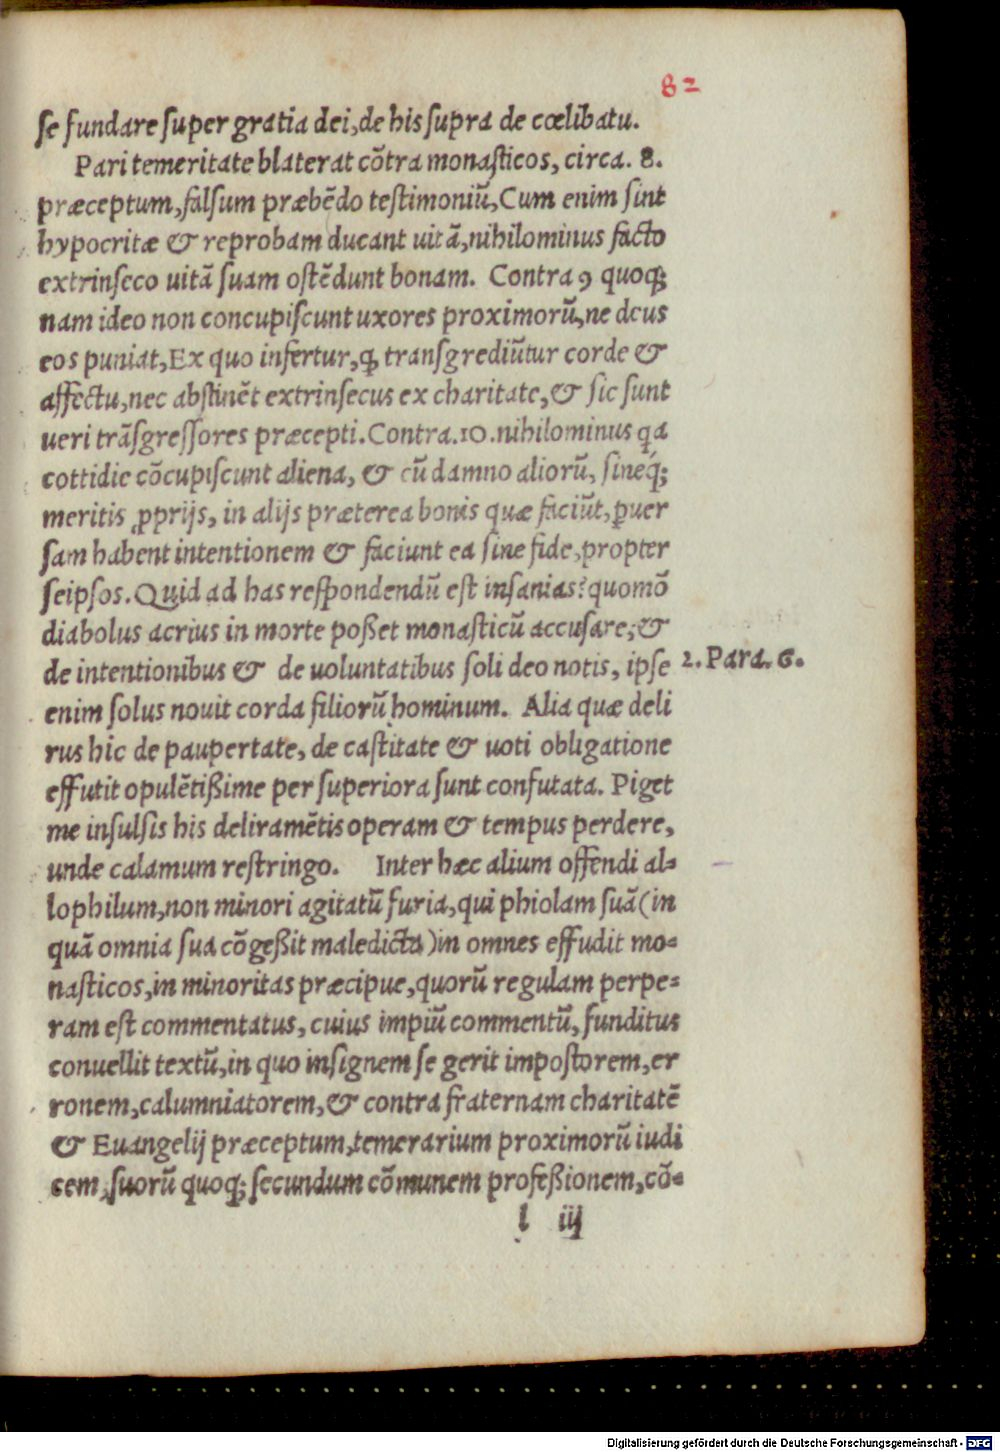 82
se fundare super gratia dei, de his supra de cœlibatu.
Pari temeritate blaterat cõtra monasticos, circa. 8.
præceptum, falsum præbẽdo testimoniũ, Cum enim sint
hypocritæ & reprobam ducant uitã, nihilominus facto
extrinseco uitã suam ostẽdunt bonam. Contra 9 quoq;
nam ideo non concupiscunt uxores proximorũ, ne deus
eos puniat, Ex quo infertur, ꝙ transgrediũtur corde &
affectu, nec abstinẽt extrinsecus ex charitate, & sic sunt
ueri trãsgressores præcepti. Contra. 10. nihilominus q̃a
cottidie cõcupiscunt aliena, & cũ damno aliorũ, sineq́;
meritis ꝓprijs, in alijs præterea bonis quæ faciũt, ꝑuer
sam habent intentionem & faciunt ea sine fide, propter
seipsos. Quid ad has respondendũ est insanias? quomõ
diabolus acrius in morte poßet monasticũ accusare, &
de intentionibus & de uoluntatibus soli deo notis, ipse
2. Para. 6.
enim solus nouit corda filiorũ hominum. Alia quæ deli
rus hic de paupertate, de castitate & uoti obligatione
effutit opulẽtißime per superiora sunt confutata. Piget
me insulsis his deliramẽtis operam & tempus perdere,
unde calamum restringo. Inter hæc alium offendi al=
lophilum, non minori agitatũ furia, qui phiolam suã (in
quã omnia sua cõgeßit maledicta) in omnes effudit mo=
nasticos, in minoritas præcipue, quorũ regulam perpe=
ram est commentatus, cuius impiũ commentũ, funditus
conuellit textũ, in quo insignem se gerit impostorem, er
ronem, calumniatorem, & contra fraternam charitatẽ
& Euangelij præceptum, temerarium proximorũ iudi
cem, suorũ quoq; secundum cõmunem profeßionem, cõ=
l iij
Digitalisierung gefördert durch die Deutsche Forschungsgemeinschaft - DFG